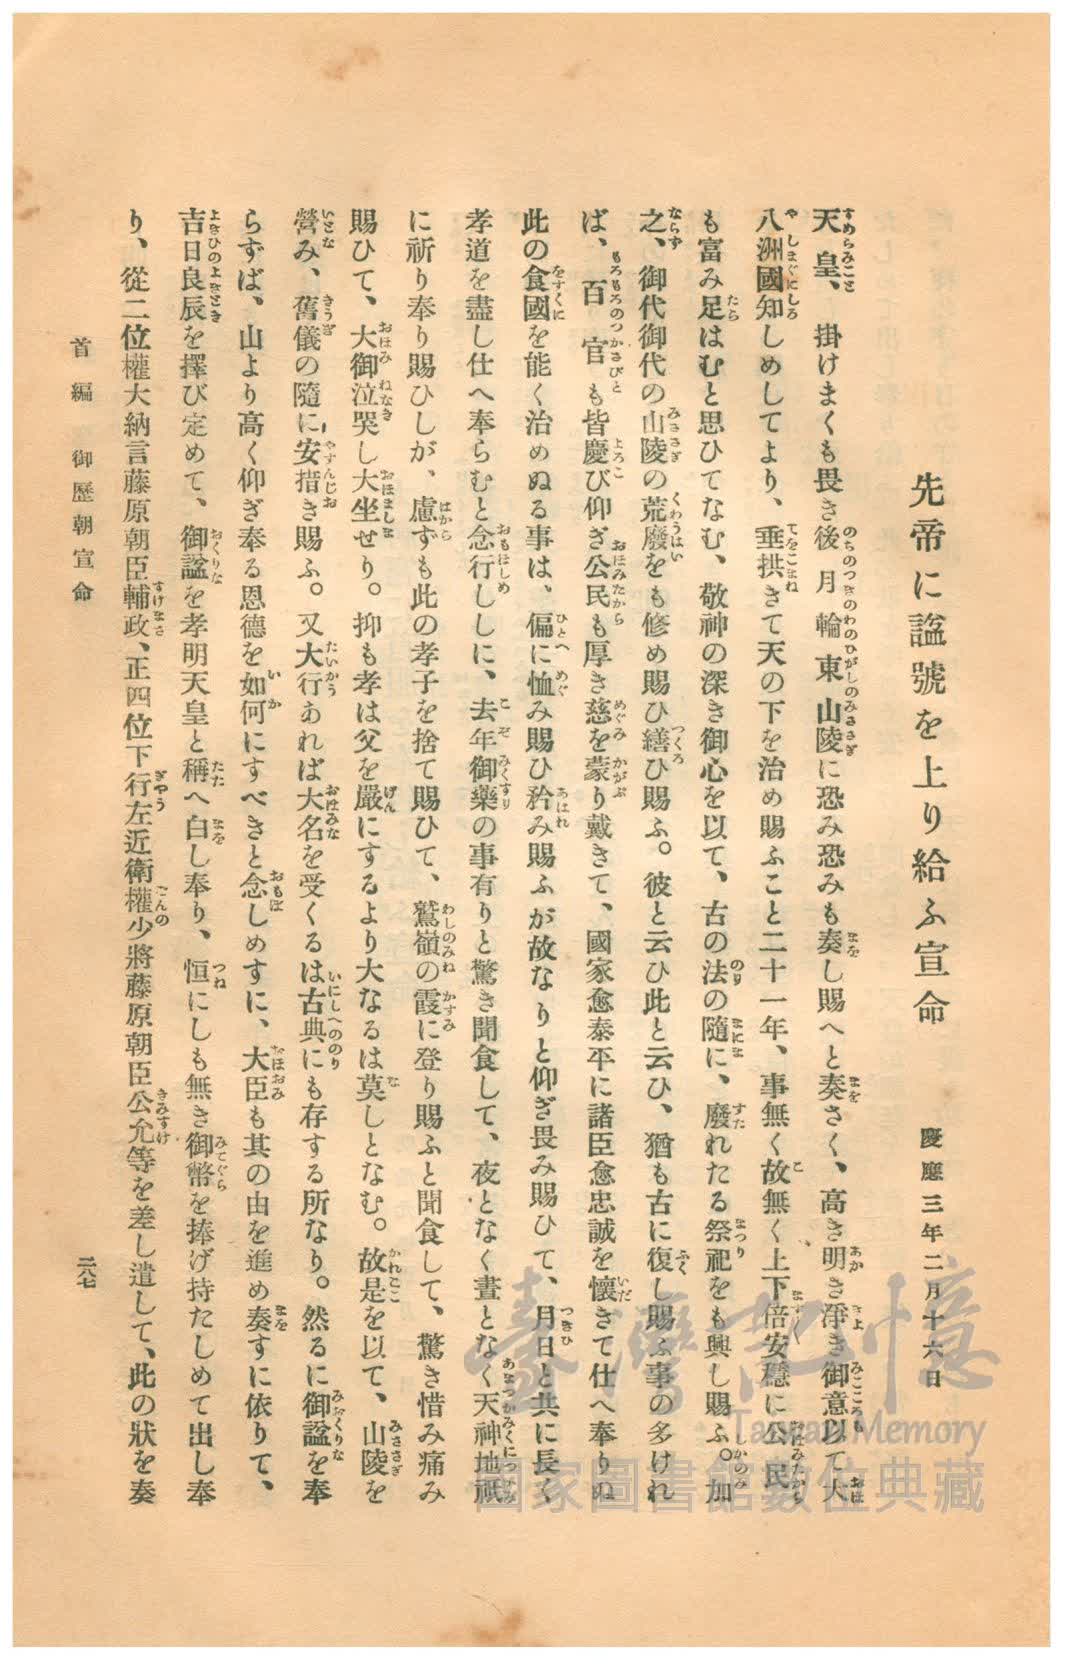 先帝に諡號を上り給ふ宣命
慶應三年二月十六日
天皇、掛けまくも畏き後月輪東山陵に恐み恐みも奏し賜へと奏さく、高き明き淨き御意以て大
八洲國知しめしてより、垂拱きて天の下を治め賜ふこと二十一年、事無く故無く上下倍安穩に公民
も富み足はむと思ひてなむ、敬神の深き御心を以て、古の法の隨に、廢れたる祭祀をも興し賜ふ。加
之、御代御代の山陵の荒廢をも修め賜ひ繕ひ賜ふ。彼と云ひ此と云ひ、猶も古に復し賜ふ事の多けれ
ば、百官も皆慶び仰ぎ公民も厚き慈を蒙り戴きて、國家愈泰平に諸臣愈忠誠を懷きて仕へ奉りぬ
此の食國を能く治めぬる事は、偏に恤み賜ひ矜み賜ふが故なりと仰ぎ畏み賜ひて、月日と共に長く
孝道を盡し仕へ奉らむと念行ししに、去年御藥の事有りと驚き聞食して、夜となく晝となく天神地祇
に祈り奉り賜ひしが、慮ずも此の孝子を捨て賜ひて、鷲嶺の霞に登り賜ふと聞食して、驚き惜み痛み
賜ひて、大御泣哭し大坐せり。抑も孝は父を嚴にするより大なるは莫しとなむ。故是を以て、山陵を
營み、舊儀の隨に安措き賜ふ。又大行あれば大名を受くるは古典にも存する所なり。然るに御諡を奉
らずば、山より高く仰ぎ奉る恩德を如何にすべきと念しめすに、大臣も其の由を進め奏すに依りて、
吉日良辰を擇び定めて、御諡を孝明天皇と稱へ白し奉り、恒にしも無き御幣を捧げ持たしめて出し奉
り、從二位權大納言藤原朝臣輔政、正四位下行左近衛權少將藤原朝臣公允等を差し遣して、此の狀を奏
首編 御歷朝宣命
二八七
臺灣記憶
Taiwan Memory
國家圖書館數位典藏